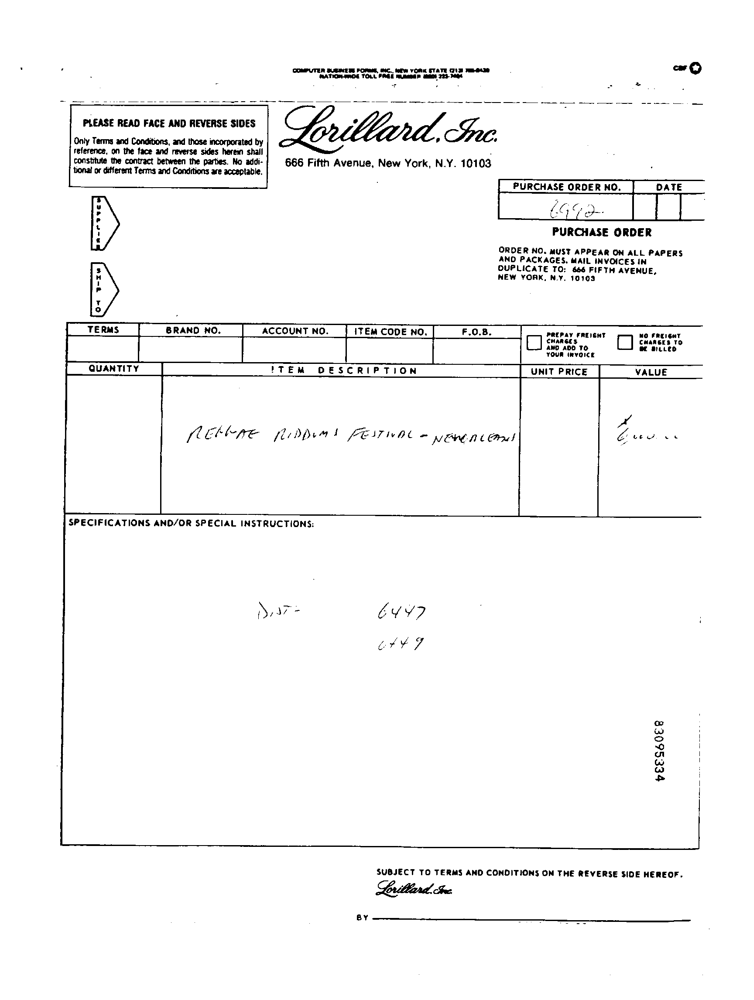 COMPUTER BUSINESS FORMS, INC., NEW YORK STATE (212)
NATION-WIDE TOLL FREE NUMBER (800) 223-7404
CBF
PLEASE READ FACE AND REVERSE SIDES
Only Terms and Conditions, and those incorporated by
reference, on the face and reverse sides herein shall
constitute the contract between the parties. No addi-
tional or different Terms and Conditions are acceptable.
Lorillard, Inc.
666 Fifth Avenue, New York, N.Y. 10103
PURCHASE ORDER NO. DATE
6992
PURCHASE ORDER
ORDER NO. MUST APPEAR ON ALL PAPERS
AND PACKAGES. MAIL INVOICES IN
DUPLICATE TO: 666 FIFTH AVENUE,
NEW YORK, N.Y. 10103
SUPPLIER
SHIP TO
TERMS BRAND NO. ACCOUNT NO. ITEM CODE NO. F.O.B.
PREPAY FREIGHT
CHARGES
AND ADD TO
YOUR INVOICE
NO FREIGHT
CHARGES TO
BE BILLED
QUANTITY ITEM DESCRIPTION UNIT PRICE VALUE
REGGAE RIDDUMS FESTIVAL - NEW ORLEANS
SPECIFICATIONS AND/OR SPECIAL INSTRUCTIONS:
DIST- 6447
6449
83095334
SUBJECT TO TERMS AND CONDITIONS ON THE REVERSE SIDE HEREOF.
Lorillard, Inc.
BY